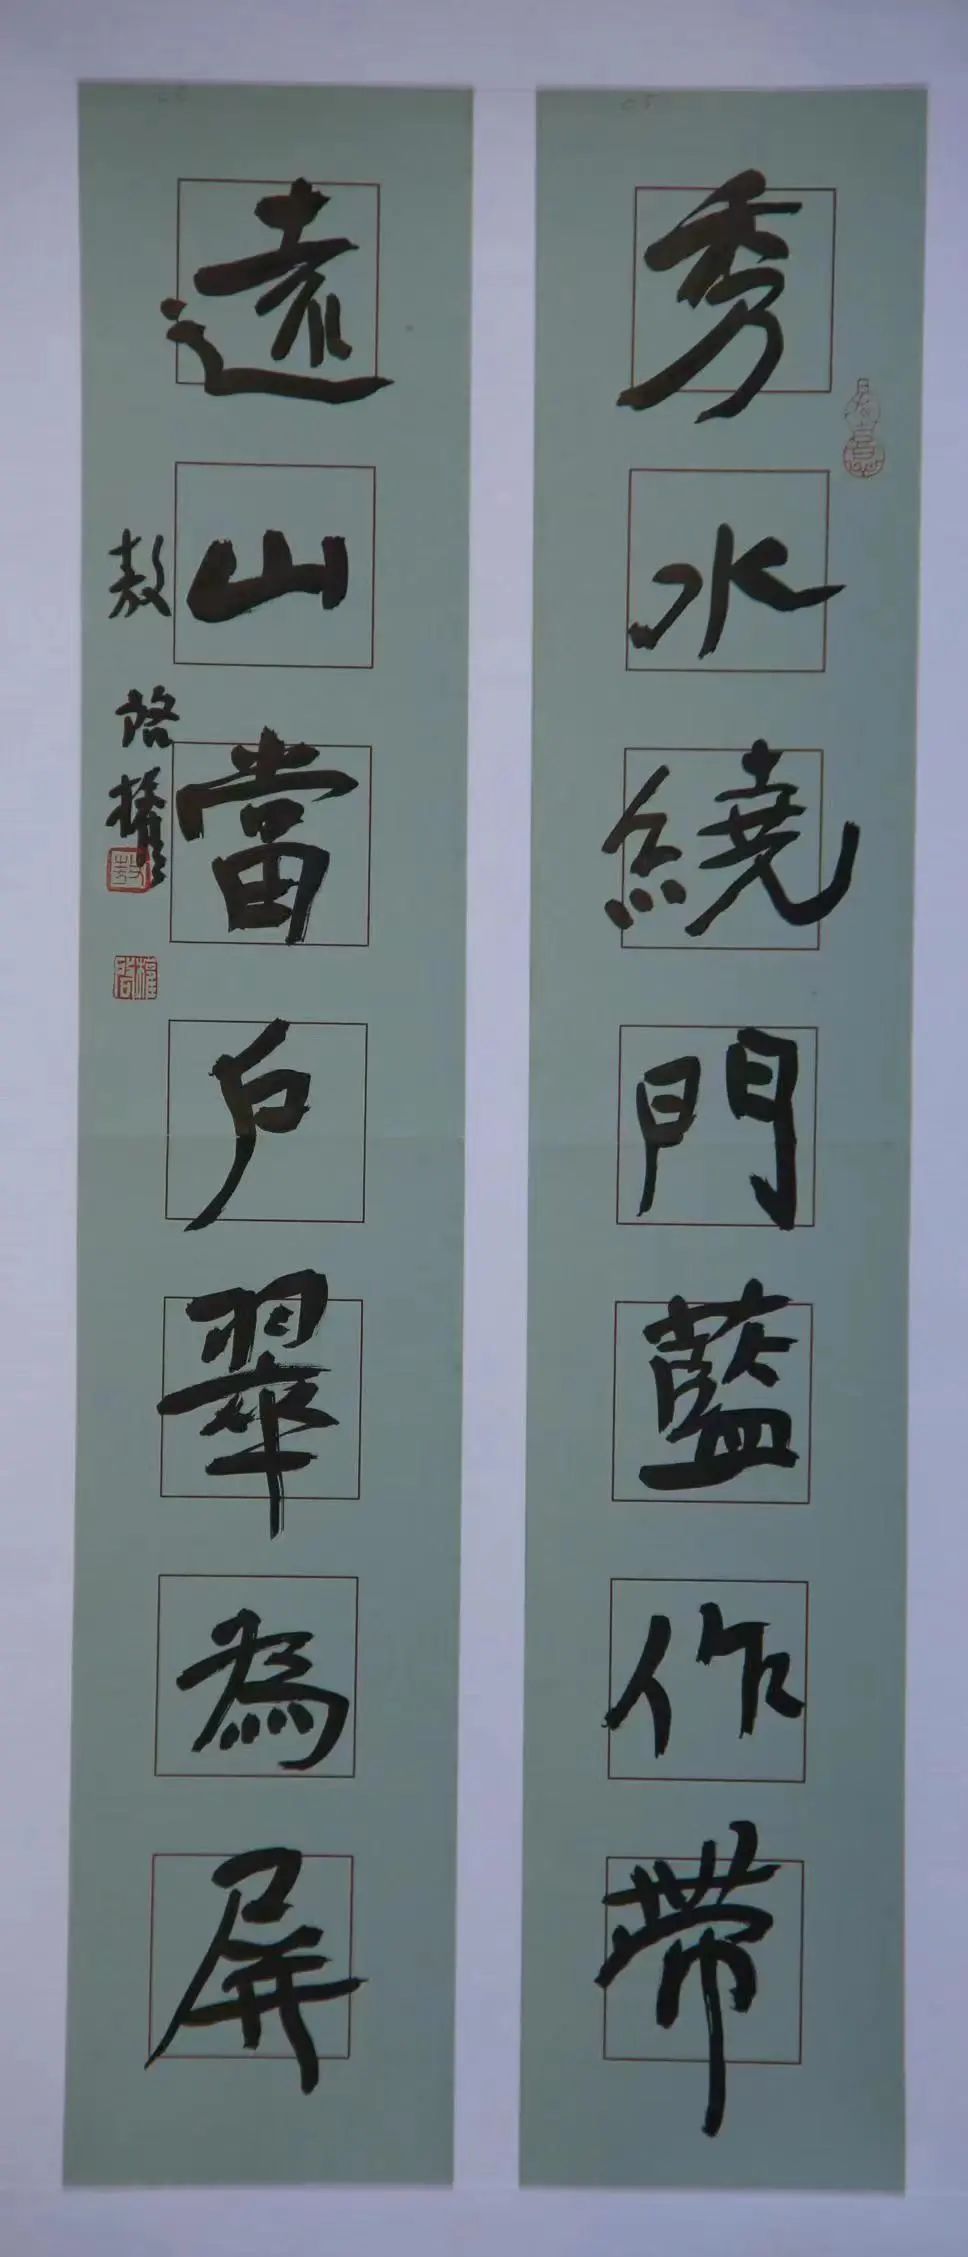 秀水繞門藍作帶
遠山當戶翠為屏
敖啓權